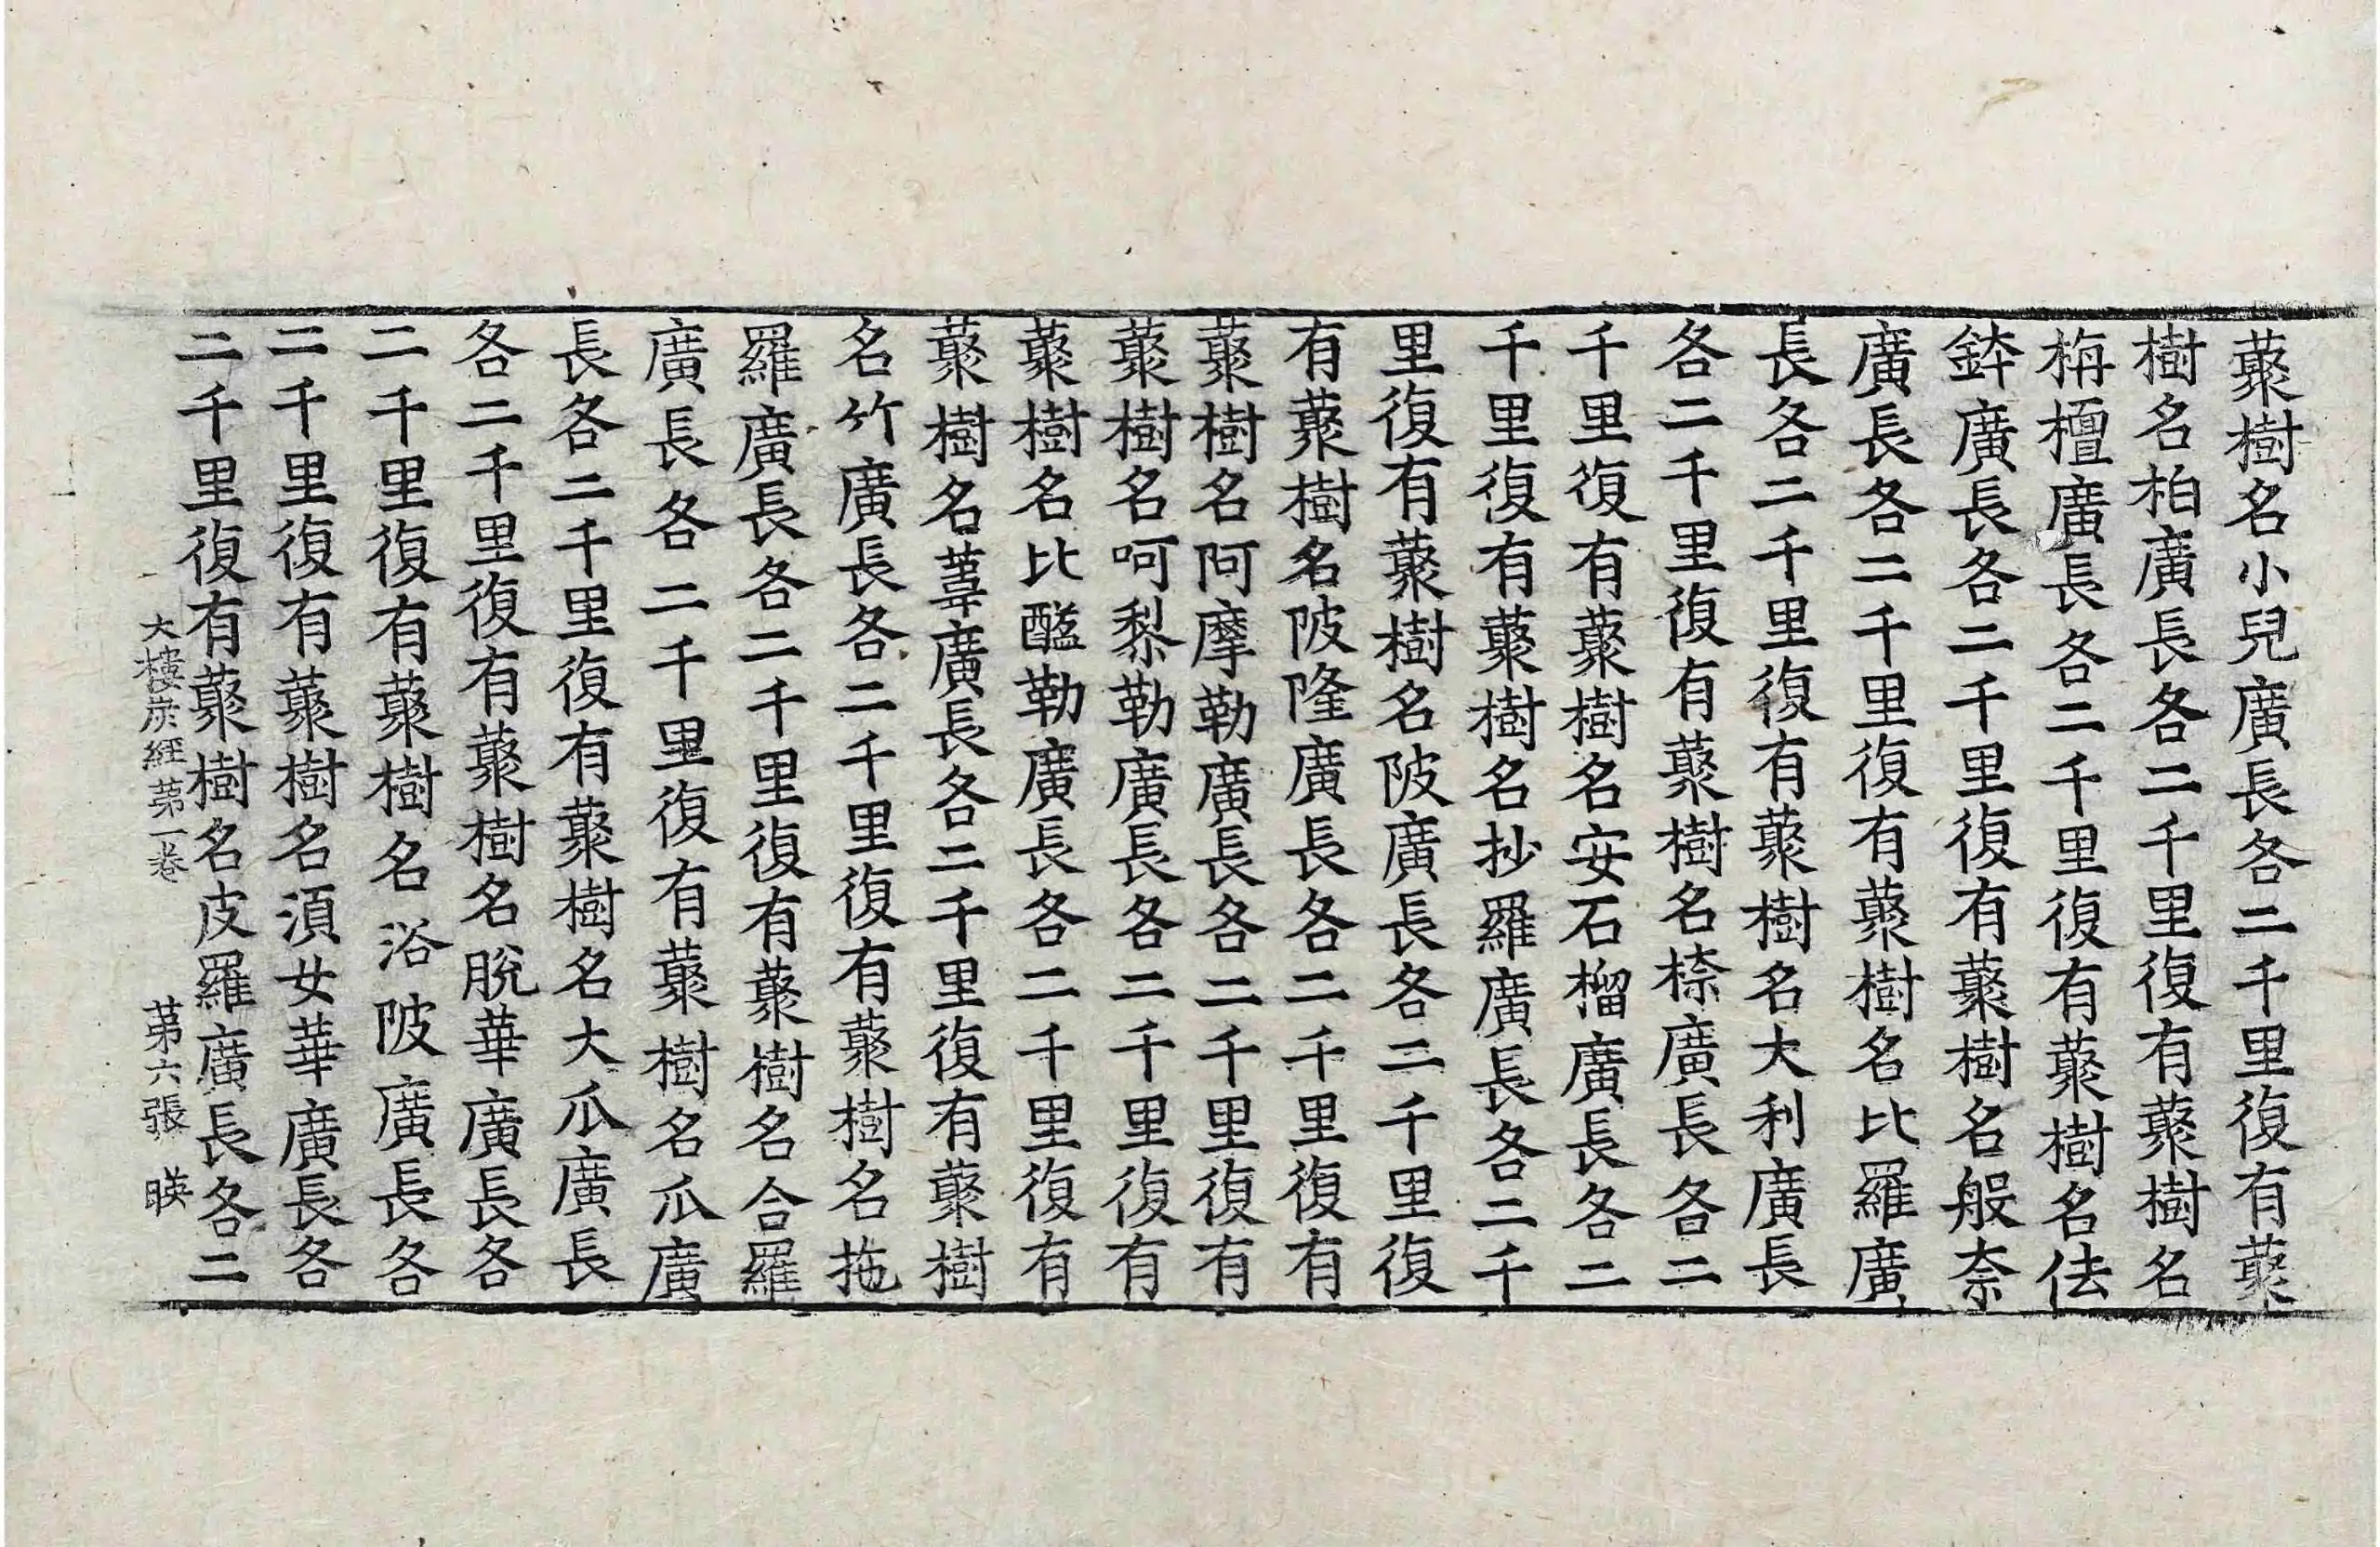 藂樹名小兒廣長各二千里復有藂
樹名柏廣長各二千里復有藂樹名
栴檀廣長各二千里復有藂樹名佉
鉢廣長各二千里復有藂樹名般奈
廣長各二千里復有藂樹名比羅廣
長各二千里復有藂樹名大利廣長
各二千里復有藂樹名㮈廣長各二
千里復有藂樹名安石榴廣長各二
千里復有藂樹名抄羅廣長各二千
里復有藂樹名陂廣長各二千里復
有藂樹名陂隆廣長各二千里復有
藂樹名阿摩勒廣長各二千里復有
藂樹名呵梨勒廣長各二千里復有
藂樹名比醯勒廣長各二千里復有
藂樹名葦廣長各二千里復有藂樹
名竹廣長各二千里復有藂樹名拖
羅廣長各二千里復有藂樹名合羅
廣長各二千里復有藂樹名瓜廣
長各二千里復有藂樹名大瓜廣長
各二千里復有藂樹名脫華廣長各
二千里復有藂樹名浴陂廣長各
二千里復有藂樹名須女華廣長各
二千里復有藂樹名皮羅廣長各二
大樓炭經第一卷 第六張 暎